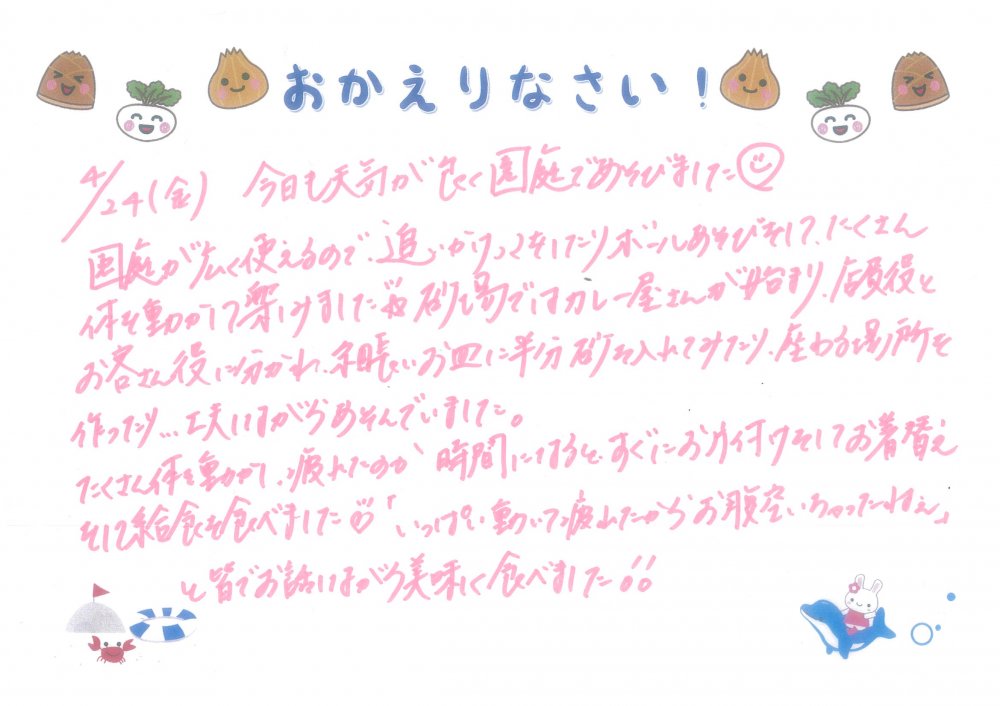 おかえりなさい！
4/24(金) 今日も天気が良く園庭であそびました
園庭が広く使えるので、追いかけっこをしたりボールあそびをして、たくさん
体を動かして楽しみました 砂場ではカレー屋さんが始まり、店員役と
お客さん役に分かれ、お皿に半分砂を入れてみたり、座わる場所を
作ったり…工夫しながらあそんでいました。
たくさん体を動かして、疲れたのか 時間になると、すぐにお片付けそしてお着替え
そして給食を食べました「いっぱい動いて疲れたからお腹空いちゃったねぇ」
と皆でお話しながら美味しく食べました!!